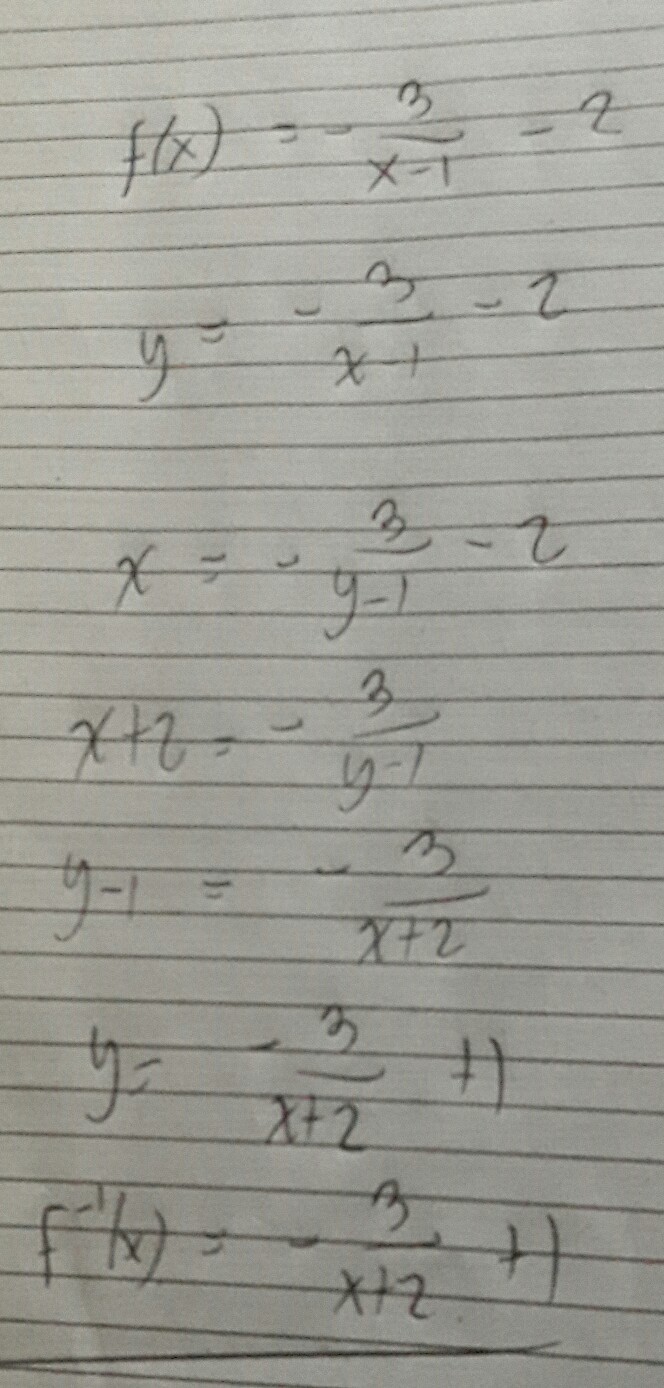 f(x) = - 3/(x-1) - 2
y = - 3/(x-1) - 2
x = - 3/(y-1) - 2
x+2 = - 3/(y-1)
y-1 = - 3/(x+2)
y = - 3/(x+2) +1
f⁻¹(x) = - 3/(x+2) +1